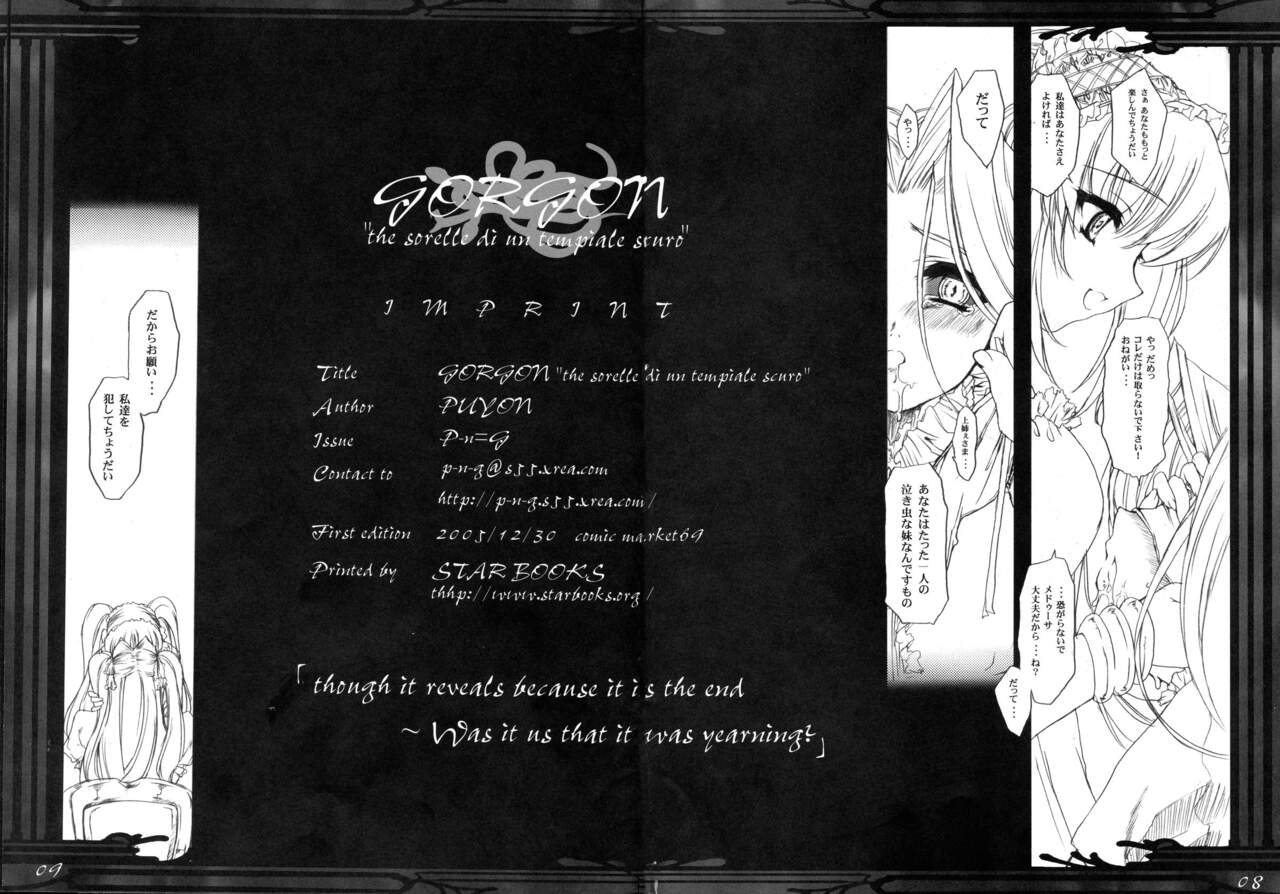 さぁ あなたももっと
楽しんでちょうだい
私達はあなたさえ
よければ・・・
やっ だめっ
コレだけは取らないで下さい！
おねがい・・・
・・・恐がらないで
メドゥーサ
大丈夫だから・・・ね？
だって・・・
だって
やっ・・・
上姉さま・・・
あなたはたった一人の
泣き虫な妹なんですもの
GORGON
"the sorelle di un tempiale scuro"
IMPRINT
Title GORGON "the sorelle di un tempiale scuro"
Author PUYON
Issue P-n=G
Contact to p-n-g@s55.xrea.com
http://p-n-g.s55.xrea.com/
First edition 2005/12/30 comic market69
Printed by STAR BOOKS
thhp://www.starbooks.org/
「though it reveals because it is the end
~ Was it us that it was yearning?」
だからお願い・・・
私達を
犯してちょうだい
09
08